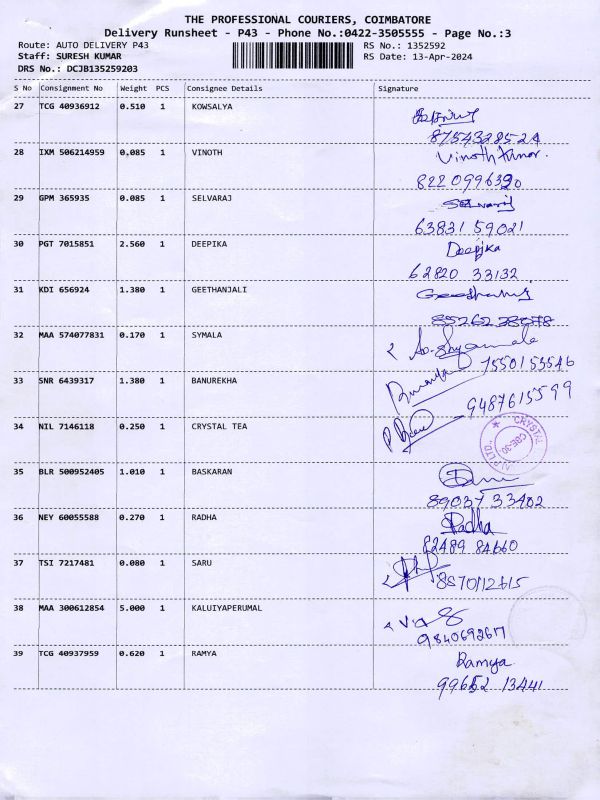 THE PROFESSIONAL COURIERS, COIMBATORE
Delivery Runsheet - P43 - Phone No.:0422-3505555 - Page No.:3
Route: AUTO DELIVERY P43 RS No.: 1352592
Staff: SURESH KUMAR RS Date: 13-Apr-2024
DRS No.: DCJB135259203
S No Consignment No Weight PCS Consignee Details Signature
27 TCG 40936912 0.510 1 KOWSALYA
8754328524
28 IXM 506214959 0.085 1 VINOTH Vinoth Kumar.
8220996320
29 GPM 365935 0.085 1 SELVARAJ Selvaraj
63831 59021
30 PGT 7015851 2.560 1 DEEPIKA Deepika
62820 33132
31 KDI 656924 1.380 1 GEETHANJALI
32 MAA 574077831 0.170 1 SYMALA
7550153546
33 SNR 6439317 1.380 1 BANUREKHA
9487615599
34 NIL 7146118 0.250 1 CRYSTAL TEA
CRYSTAL
CBE-30
35 BLR 500952405 1.010 1 BASKARAN
89037 33402
36 NEY 60055588 0.270 1 RADHA Radha
82489 84660
37 TSI 7217481 0.080 1 SARU
8870112615
38 MAA 300612854 5.000 1 KALUIYAPERUMAL
9840692617
39 TCG 40937959 0.620 1 RAMYA Ramya
99652 13441